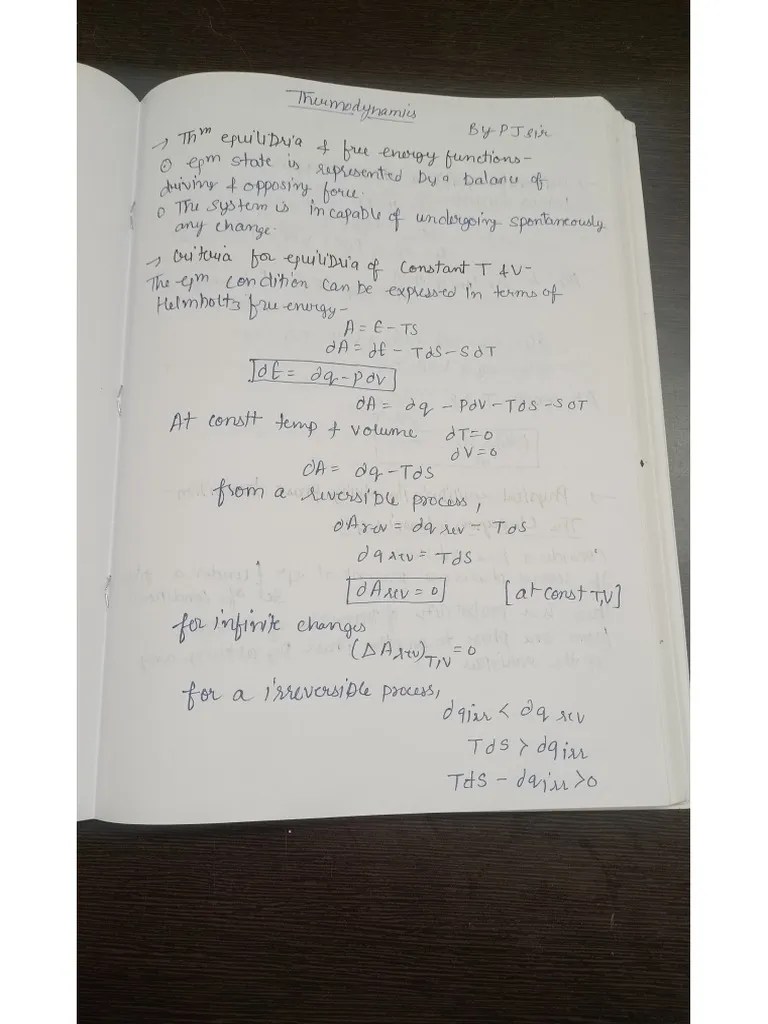 Thermodynamics
By PJ sir
→ Thm equilibria & free energy functions-
⊙ eqm state is represented by a balance of
driving & opposing force.
o The system is incapable of undergoing spontaneously
any change.
→ Criteria for equilibria of constant T & V-
The eqm condition can be expressed in terms of
Helmholtz free energy-
A = E - TS
dA = dE - TdS - SdT
dE = dq - PdV
dA = dq - PdV - TdS - SdT
At constt temp & volume dT=0
dV=0
dA = dq - TdS
from a reversible process,
dArev = dq rev - TdS
dq rev = TdS
dArev = 0 [at const T,V]
for infinite changes
(ΔArev)T,V = 0
for a irreversible process,
dqirr < dq rev
TdS > dqirr
TdS - dqirr > 0